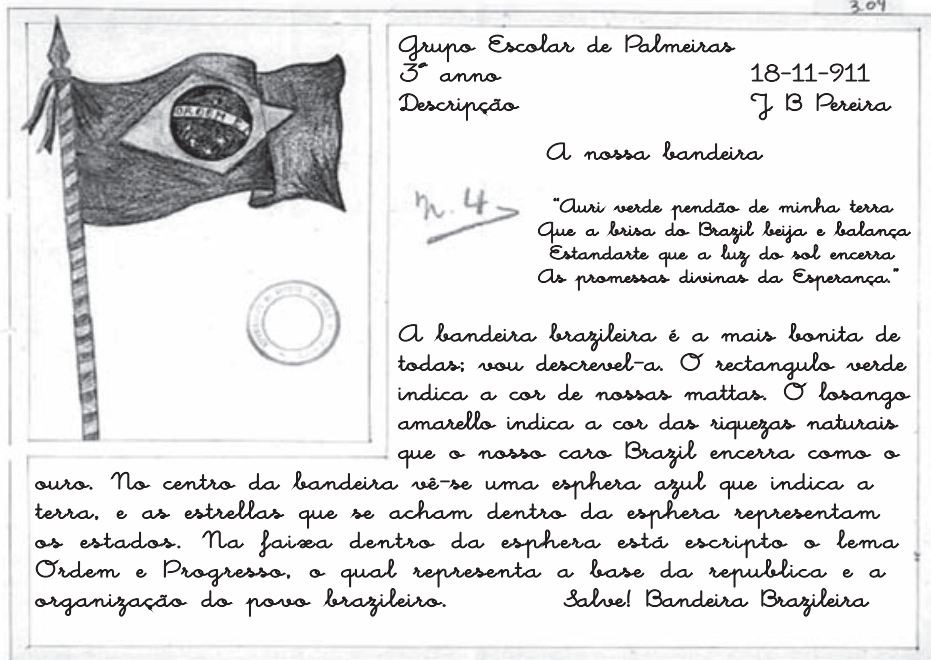 3.04
ORDEM E P
Grupo Escolar de Palmeiras
3º anno 18-11-911
Descripção J B Pereira
A nossa bandeira
n. 4
"Auri verde pendão de minha terra
Que a brisa do Brazil beija e balança
Estandarte que a luz do sol encerra
As promessas divinas da Esperança."
A bandeira brazileira é a mais bonita de
todas; vou descrevel-a. O rectangulo verde
indica a cor de nossas mattas. O losango
amarello indica a cor das riquezas naturais
que o nosso caro Brazil encerra como o
ouro. No centro da bandeira vê-se uma esphera azul que indica a
terra, e as estrellas que se acham dentro da esphera representam
os estados. Na faixa dentro da esphera está escripto o lema
Ordem e Progresso, o qual representa a base da republica e a
organização do povo brazileiro. Salve! Bandeira Brazileira